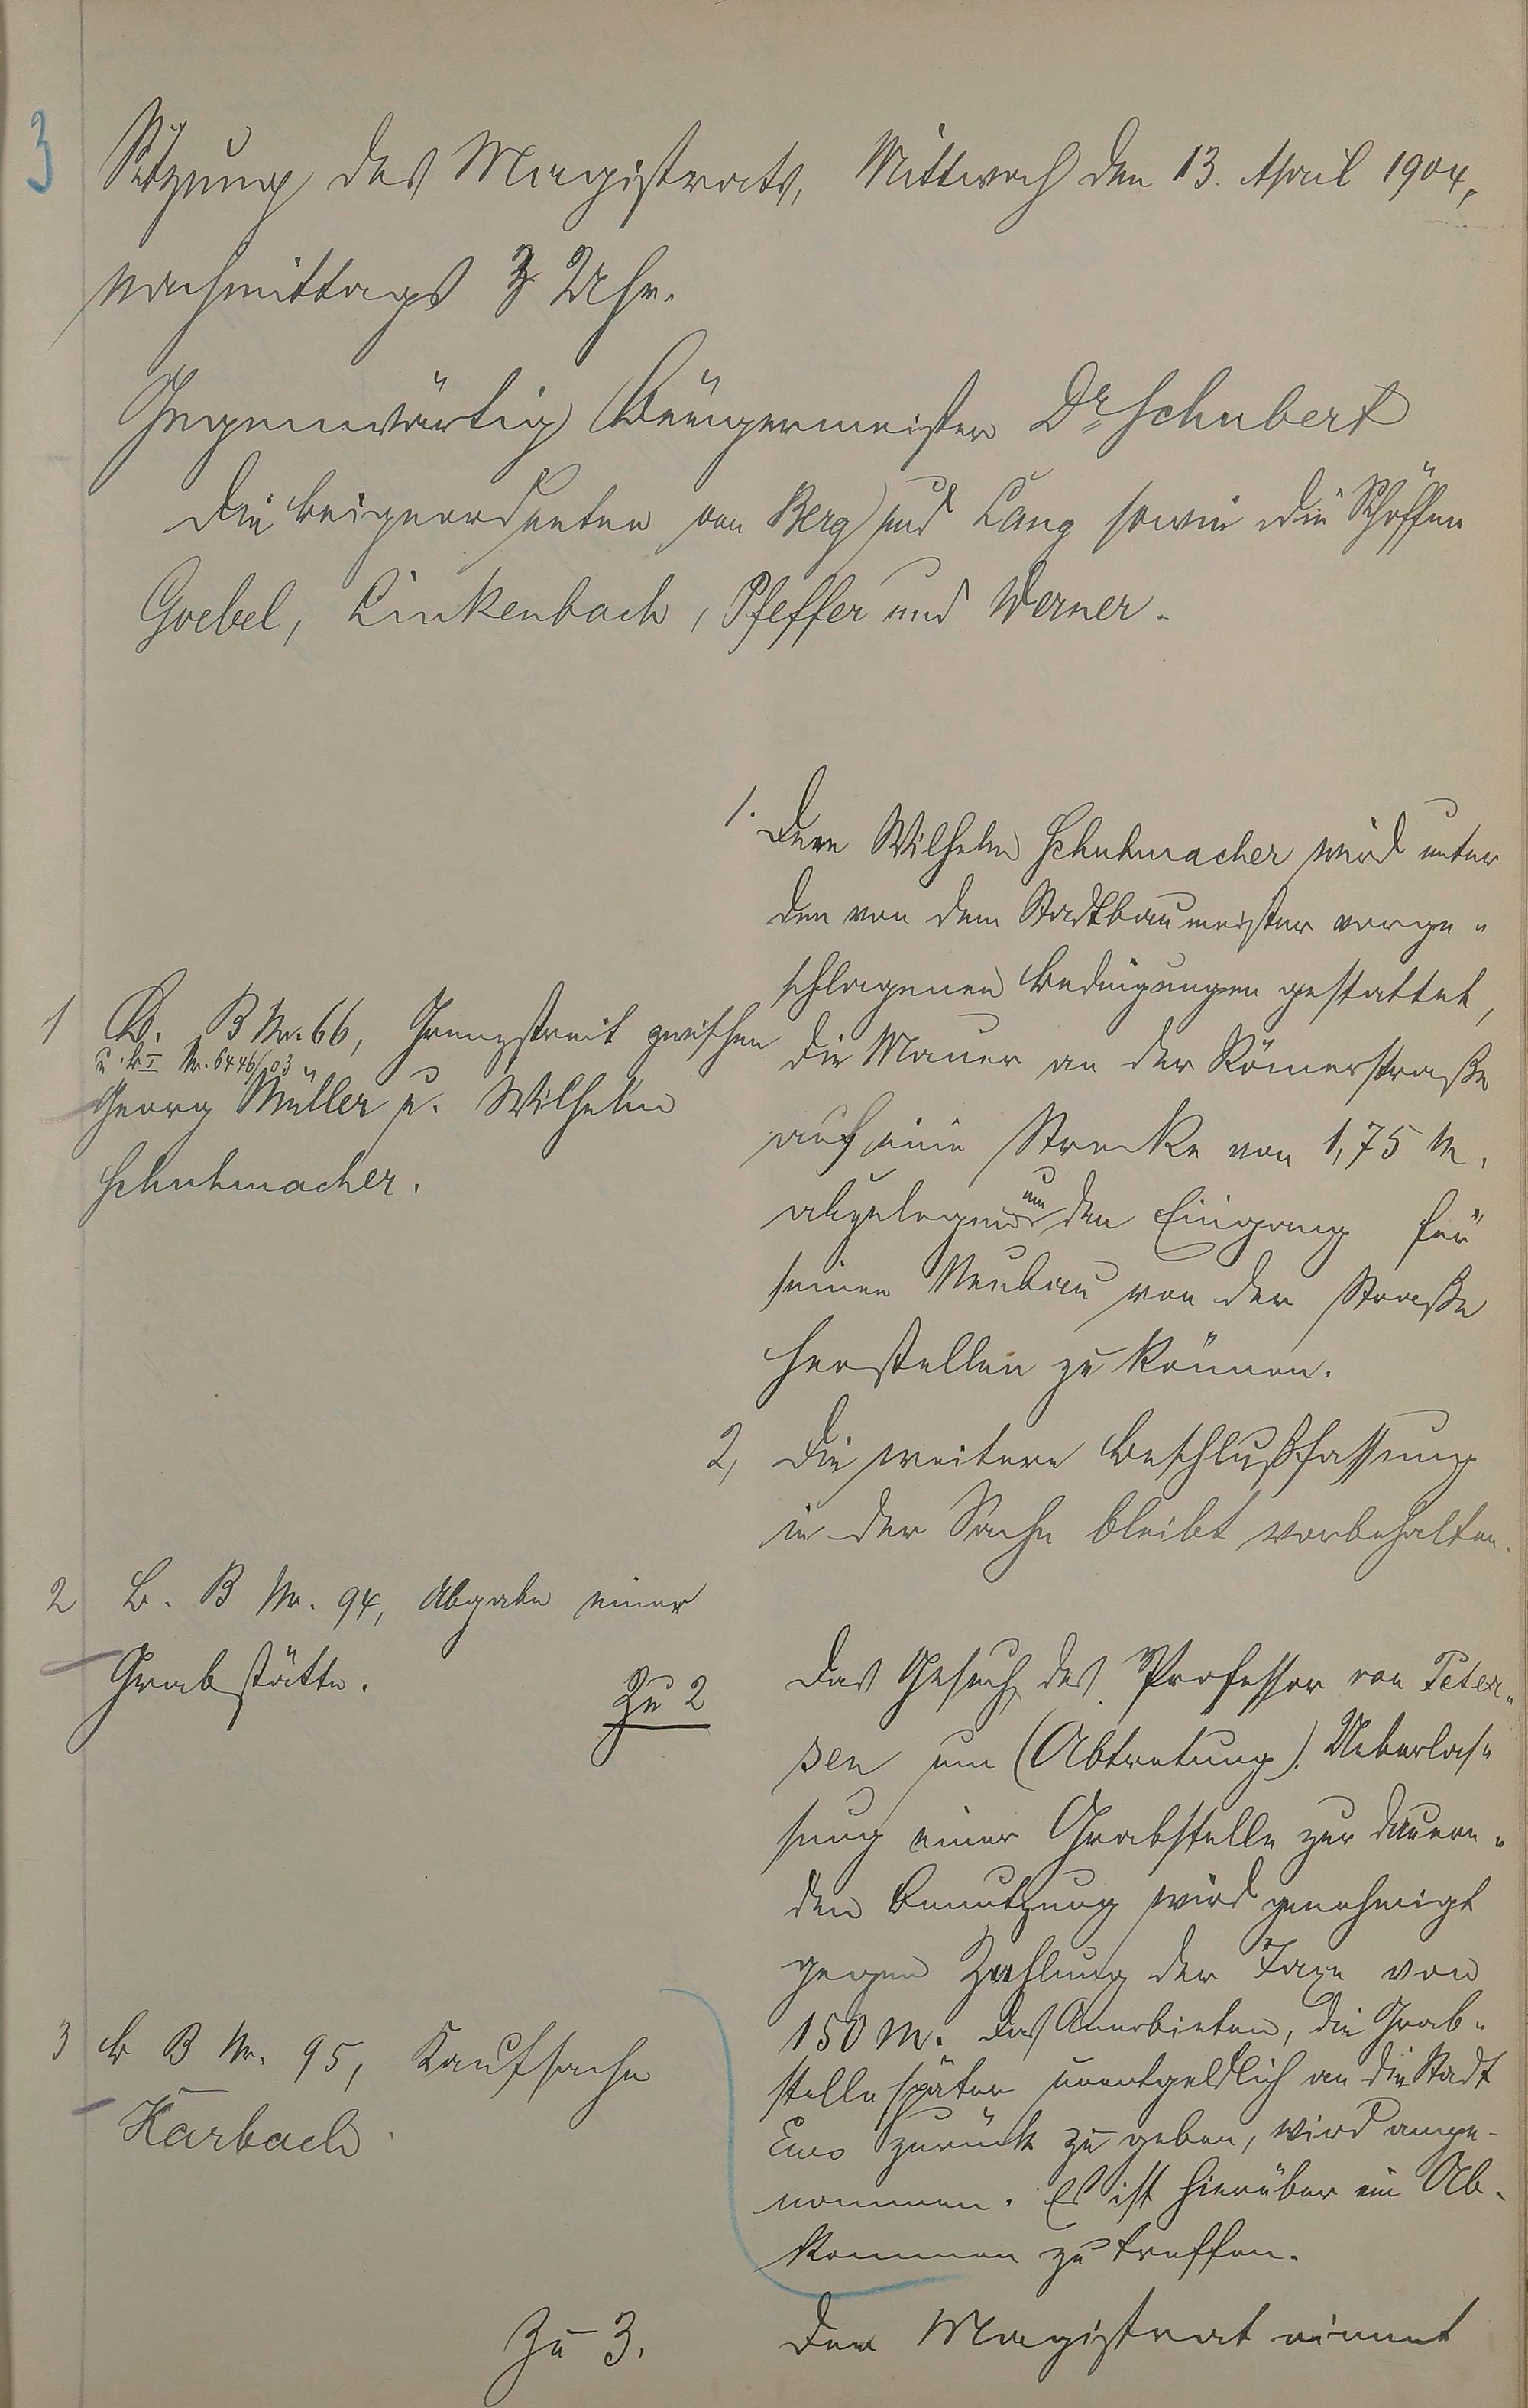 3
Sitzung des Magistrats, Mittwoch den 13. April 1904,
nachmittags 3 Uhr.
Gegenwärtig Bürgermeister Dr Schubert
die Beigeordneten von Berg und Lang sowie die Schöffen
Goebel, Linkenbach, Pfeffer und Werner.
1 B. B Nr. 66, Grenzstreit zwischen
u. B I Nr. 6446/03
Georg Müller u. Wilhelm
Schuhmacher.
1. Dem Wilhelm Schuhmacher wird unter
den von dem Stadtbaumeister vorge-
schlagenen Bedingungen gestattet,
die Mauer an der Römerstraße
auf eine Strecke von 1,75 m.
abzulegen um den Eingang für
seinen Neubau von der Straße
herstellen zu können.
2, Die weitere Beschlußfassung
in der Sache bleibt vorbehalten.
2 B. B Nr. 94, Abgabe einer
Grabstätte.
Zu 2
Das Gesuch des Professor von Peter-
sen um (Abtretung). Ueberlas-
sung einer Grabstelle zur dauern-
den Benutzung wird genehmigt
gegen Zahlung der Taxe von
150 M. Das Anerbieten, die Grab-
stelle später unentgeldlich an die Stadt
Ems zurück zu geben, wird ange-
nommen. Es ist hierüber ein Ab-
kommen zu treffen.
3 B B Nr. 95, Kaufsache
Karbach
Zu 3.
Der Magistrat nimmt